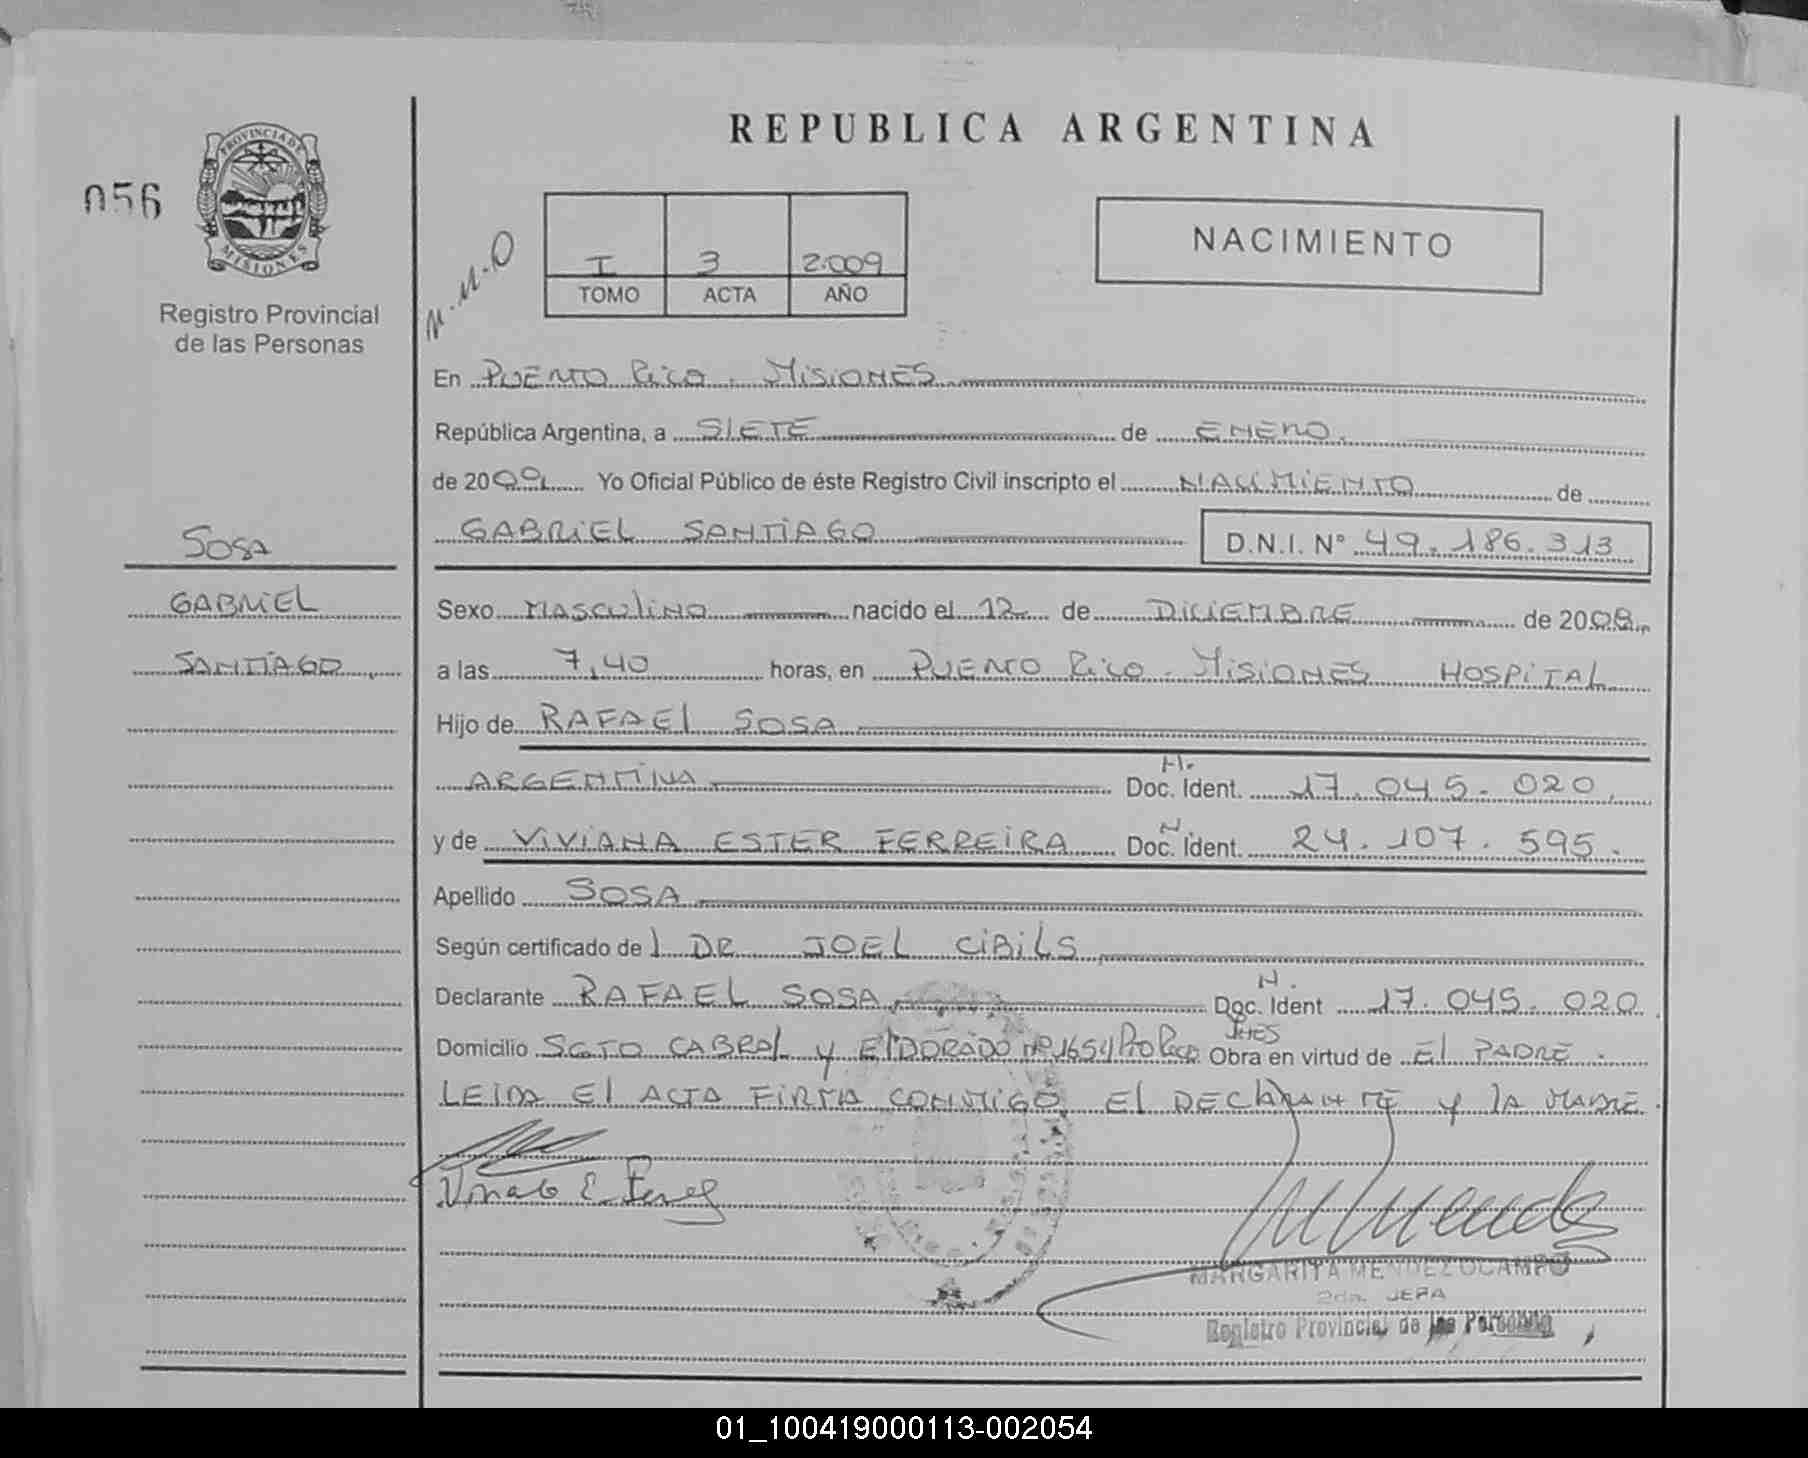 REPUBLICA ARGENTINA
056
PROVINCIA DE
MISIONES
Registro Provincial
de las Personas
I 3 2.009
TOMO ACTA AÑO
NACIMIENTO
En PUERTO RICO. MISIONES
República Argentina, a SIETE de ENERO.
de 2009 Yo Oficial Público de éste Registro Civil inscripto el NACIMIENTO de
GABRIEL SANTIAGO D.N.I. N° 49.186.313
SOSA
GABRIEL
SANTIAGO
Sexo MASCULINO nacido el 12 de DICIEMBRE de 2008
a las 7,40 horas, en PUERTO RICO. MISIONES HOSPITAL
Hijo de RAFAEL SOSA
ARGENTINA Doc. Ident. 17.045.020
y de VIVIANA ESTER FERREIRA Doc. Ident. 24.107.595.
Apellido SOSA
Según certificado de DR JOEL CIBILS
Declarante RAFAEL SOSA Doc. Ident 17.045.020
Domicilio SGTO CABRAL y ELDORADO Nº 1654 Pto Rico Obra en virtud de El PADRE.
LEIDA El ACTA FIRMA CONMIGO, El DECLARANTE y LA MADRE.
MARGARITA MENDEZ OCAMPO
2da. JEFA
Registro Provincial de las Personas
01_100419000113-002054